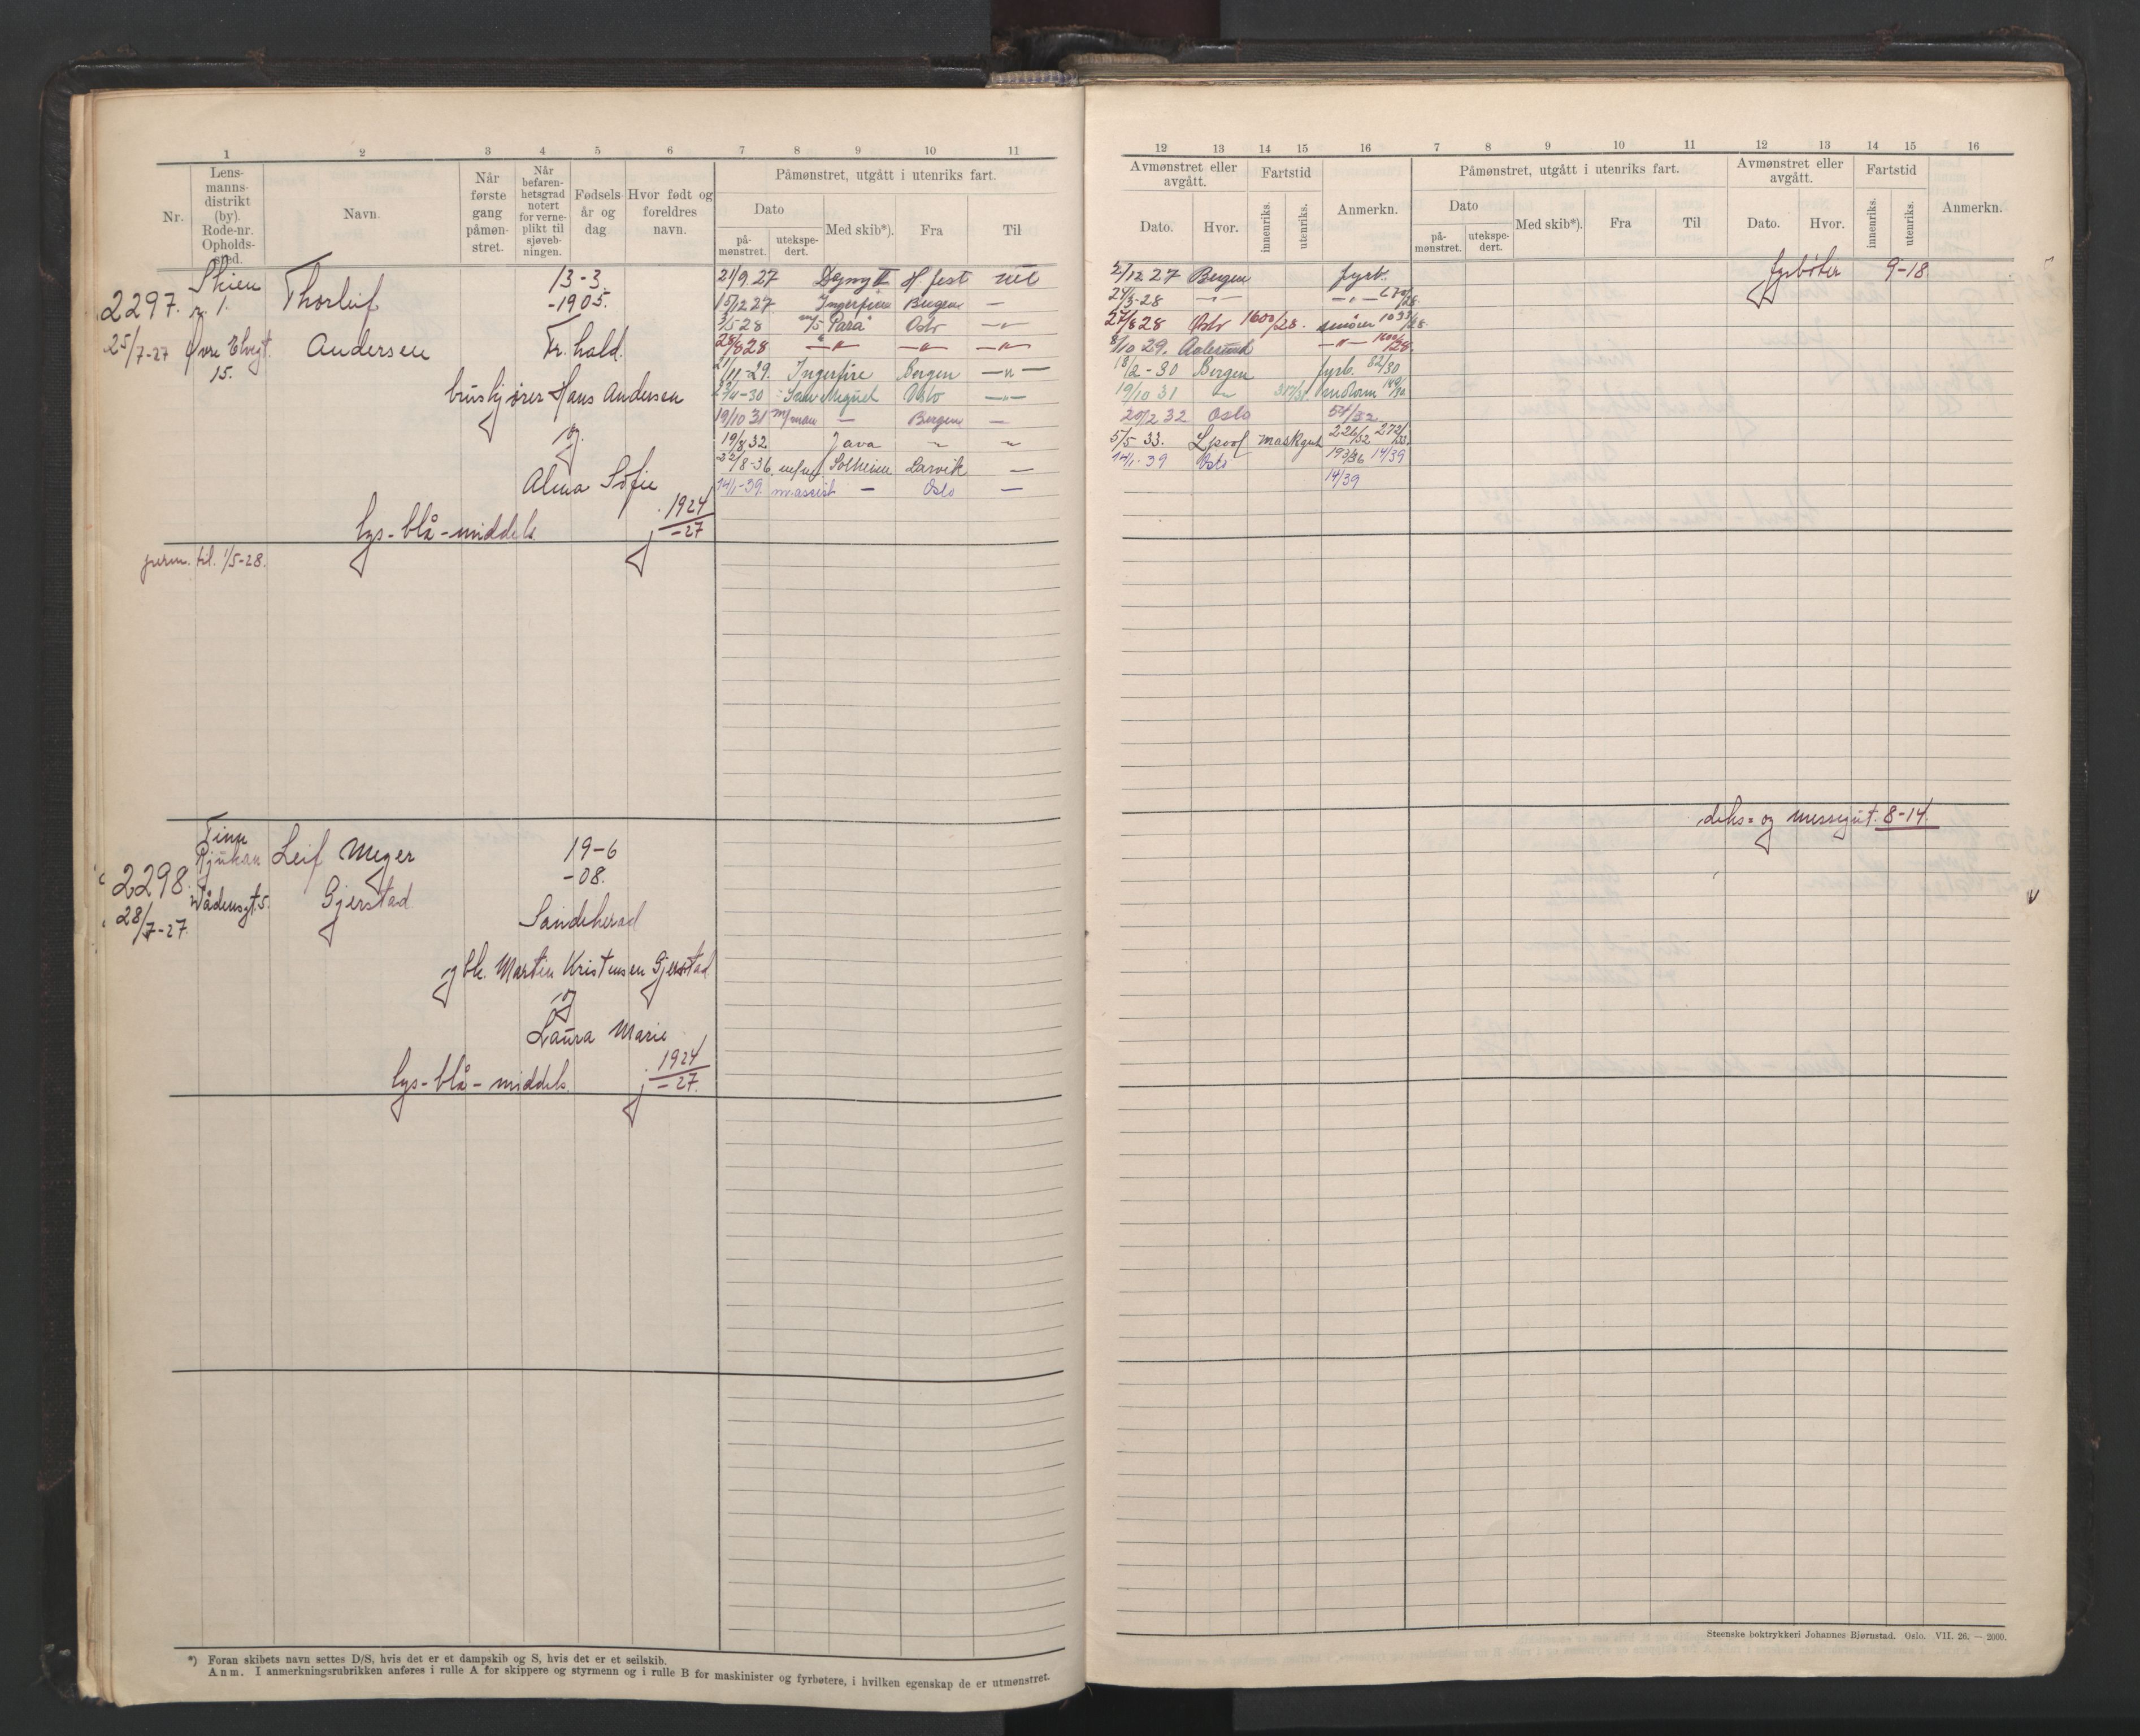 1 2 3 4 5 6 7 8 9 10 11
Nr.
Lens-
manns-
distrikt
(by).
Rode-nr.
Opholds-
sted.
Navn.
Når
første
gang
påmøn-
stret.
Når
befaren-
hetsgrad
notert
for verne-
plikt til
sjøveb-
ningen.
Fødsels-
år og
dag
Hvor født og
foreldres
navn.
Påmønstret, utgått i utenriks fart.
Dato
på-
mønstret.
utekspe-
dert.
Med skib*).
Fra
Til
2297.
25/7-27
Skien
r. 1.
Øvre Elvegt.
15.
Thorleif
Andersen
13-3.
-1905.
Fr.hald.
bruskjører Hans Andersen
og
Alma Sofie
lys-blå-middels
1924
-27
perm. til. 1/5-28.
21/9.27 H.fest ut
15/12 27 Ingerfire Bergen —
3/5 28 m/s Pará Oslo —"—
28/8 28 —"— —"— —"—
21/11-29. Ingerfire Bergen —"—
23/4-30 Oslo —"—
19/10 31 — Bergen —
19/8 32 Java " "
22/8-36 Solheim Larvik —
14/1-39. — Oslo —
2298
28/7-27.
Tinn
Rjukan
5.
Leif Meyer
Gjerstad
19-6
-08.
Sandeherad
Martin Kristensen Gjerstad
og
Laura Marie
lys-blå-middels.
1924
-27.
*) Foran skibets navn settes D/S, hvis det er et dampskib og S, hvis det er et seilskib.
Anm. I anmerkningsrubrikken anføres i rulle A for skippere og styrmenn og i rulle B for maskinister og fyrbøtere, i hvilken egenskap de er utmønstret.
12 13 14 15 16 7 8 9 10 11 12 13 14 15 16
Avmønstret eller
avgått.
Dato.
Hvor.
Fartstid
innenriks.
utenriks.
Anmerkn.
Påmønstret, utgått i utenriks fart.
Dato
på-
mønstret.
utekspe-
dert.
Med skib*).
Fra
Til
Avmønstret eller
avgått.
Dato.
Hvor.
Fartstid
innenriks.
utenriks.
Anmerkn.
2/12 27 Bergen fyrb.
fyrbøter 9-18
24/3-28 —"— —"—
27/8 28 Oslo 1600/28. smører 1033/28
8/10 29. Aalesund —"— 1600/28.
18/2-30 Bergen fyrb. 82/30
19/10 31 "
20/2 32 Oslo
5/5 33. Lpool 226/32 272/33.
14/1-39 Oslo 193/36 14/39
14/39
deks- og messegut. 8-14.
Steenske boktrykkeri Johannes Bjørnstad. Oslo. VII. 26. — 2000.